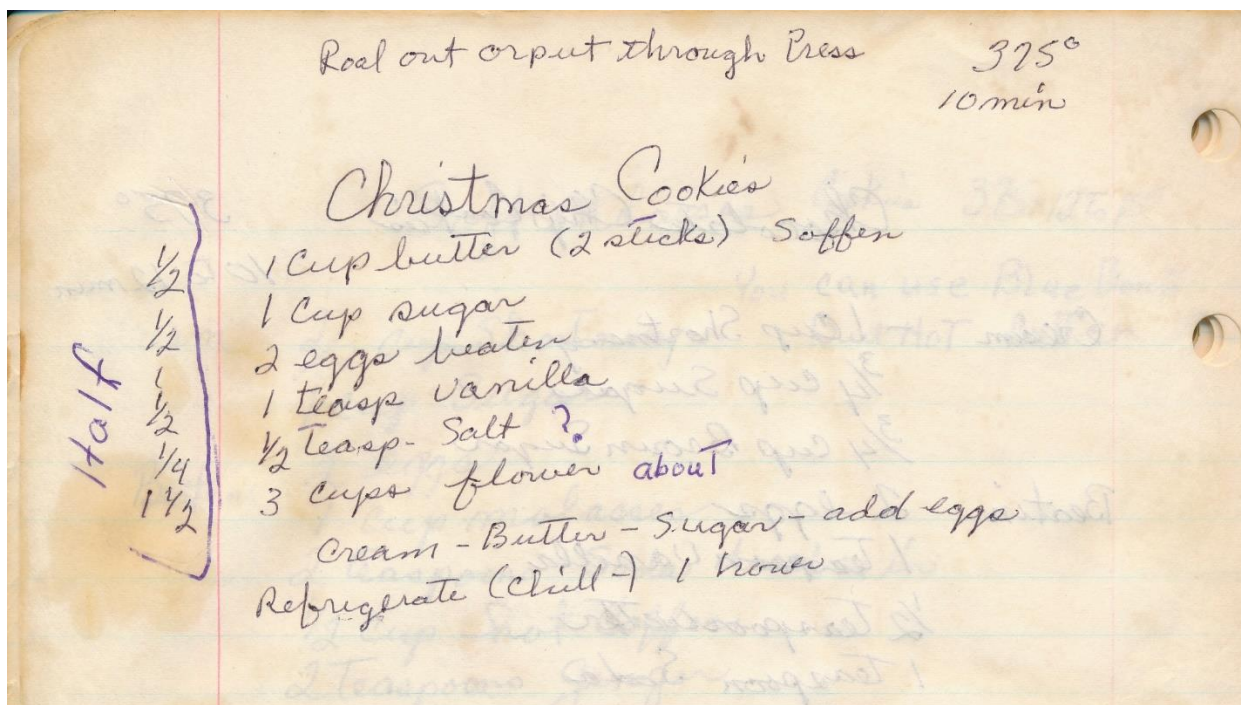 Roal out or put through Press 375°
10 min
Christmas Cookies
1/2 1 Cup butter (2 sticks) Soffen
1/2 1 Cup sugar
1 2 eggs beaten
1/2 1 teasp vanilla
1/4 1/2 Teasp- Salt ?
1 1/2 3 Cups flower about
Half
Cream - Butter - Sugar - add eggs
Refrigerate (Chill-) 1 hower